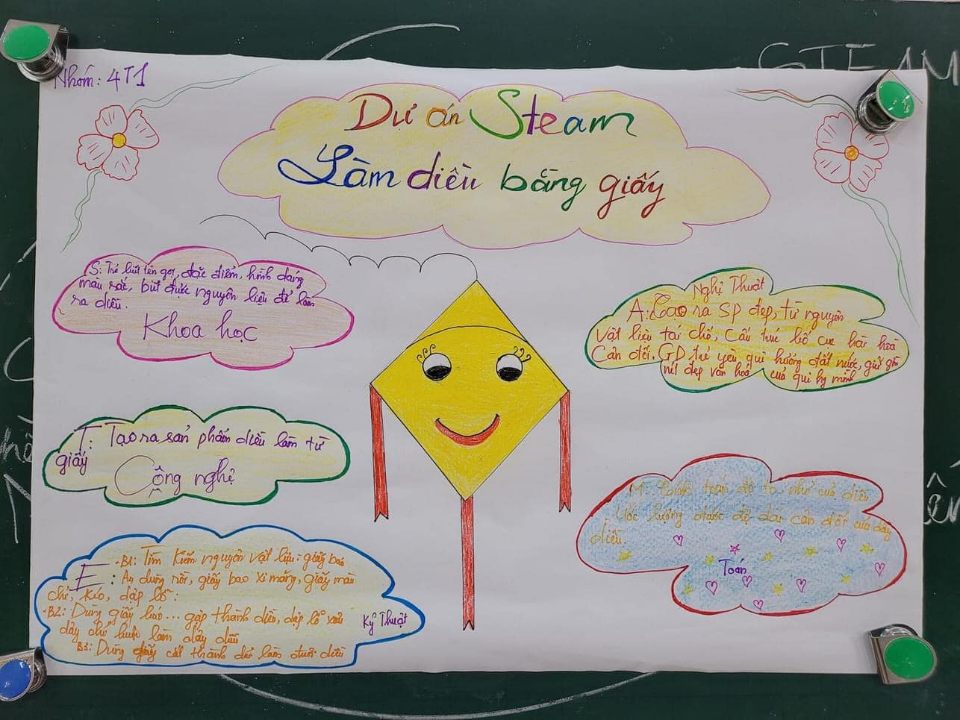 Nhóm: 4T1
STEAM
Dự án Steam
Làm diều bằng giấy
S: Trẻ biết tên gọi, đặc điểm, hình dáng
màu sắc, biết được nguyên liệu để làm
ra diều.
Khoa học
Nghệ Thuật
A: Tạo ra SP đẹp, từ nguyên
vật liệu tái chế, cấu trúc bố cục hài hòa
Cân đối, GD trẻ yêu quê hương đất nước, giữ gìn
nét đẹp văn hoá của quê hg mình
T: Tạo ra sản phẩm diều làm từ
giấy
Công nghệ
M: toán to nhỏ của diều
Ước lượng được độ dài cân đối của dây
diều.
Toán
E
-B1: Tìm kiếm nguyên vật liệu: giấy báo
: Ao dùng rồi, giấy bao xi măng, giấy màu
chỉ, kéo, dập lỗ:
-B2: Dùng giấy báo... gấp thành diều, dập lỗ xỏ
dây chỉ luồn làm dây diều
B3: Dùng giấy cắt thành dải làm đuôi diều
Kỹ Thuật